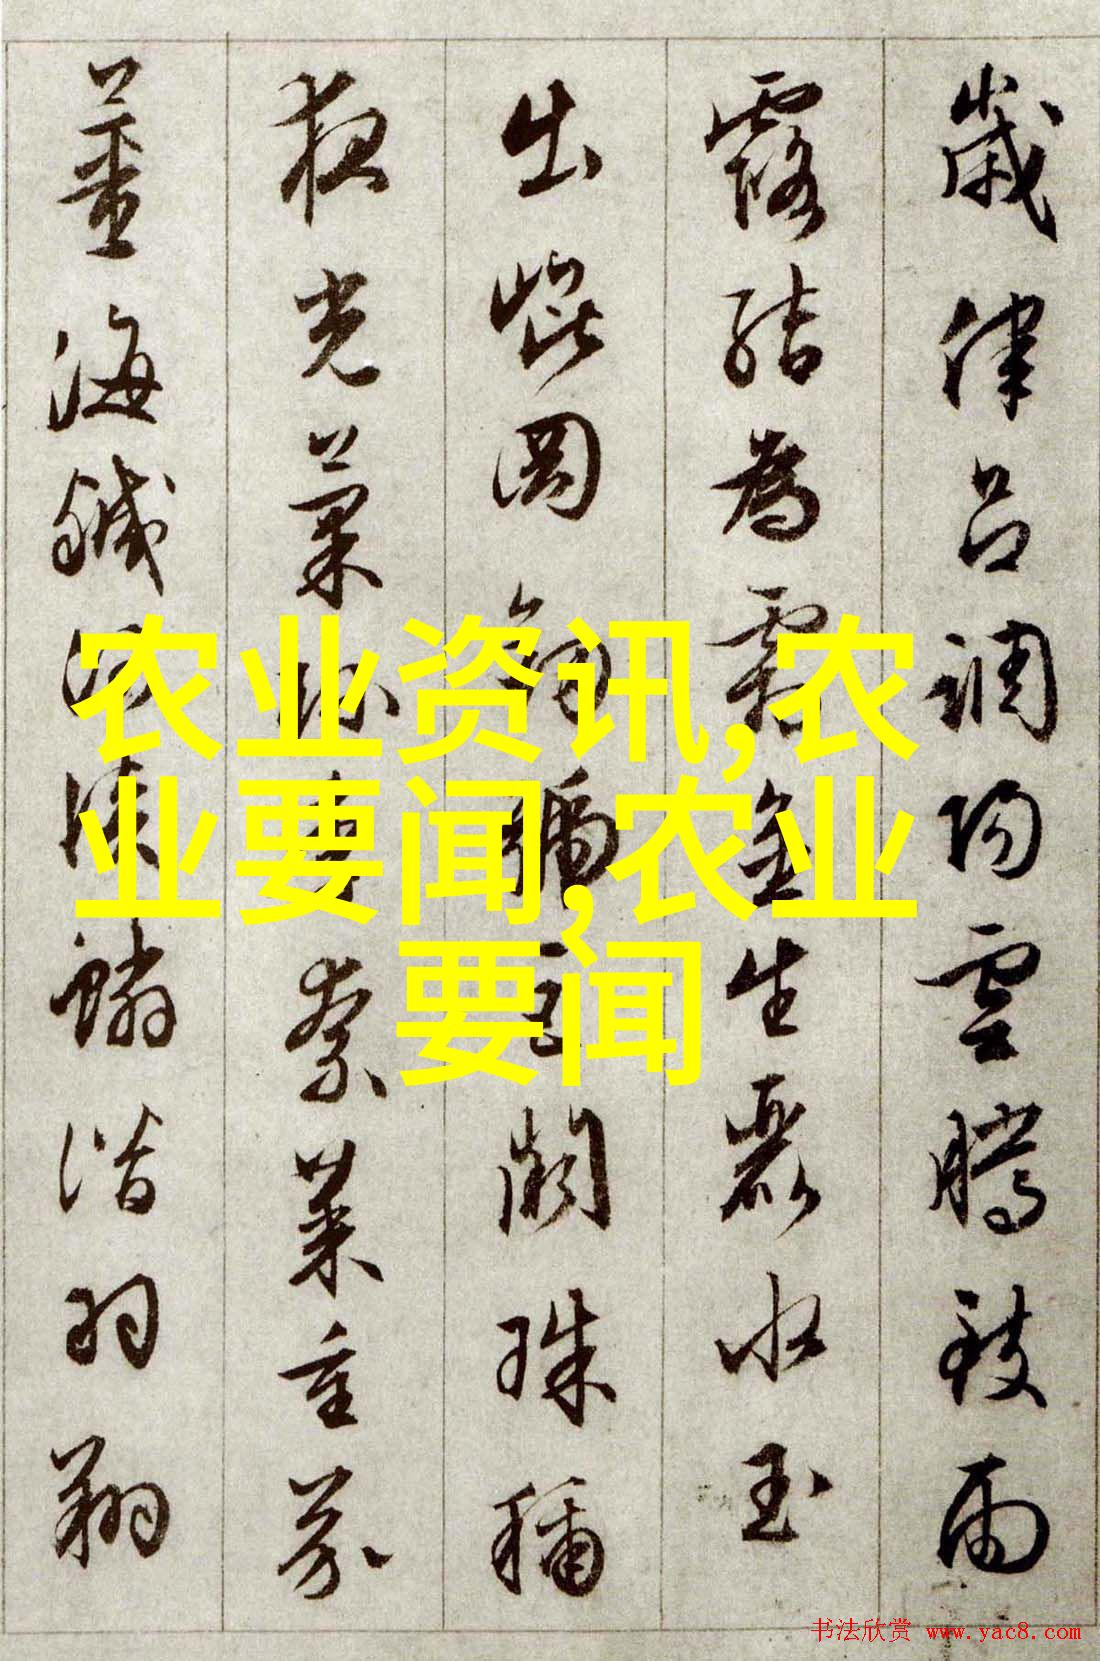 歲律吕調陽雲騰致雨
露結為霜金生麗水玉
出崐岡劒號巨闕珠稱
夜光菓珍李柰菜重芥
薑海鹹河淡鱗潜羽翔
农业资讯,农
业要闻,农业
要闻
书法欣赏 www.yac8.com